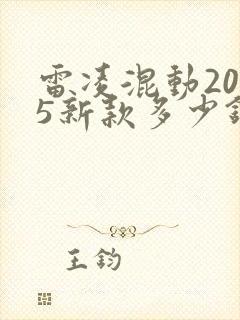 雷凌混動20
5新款多少
王鈞